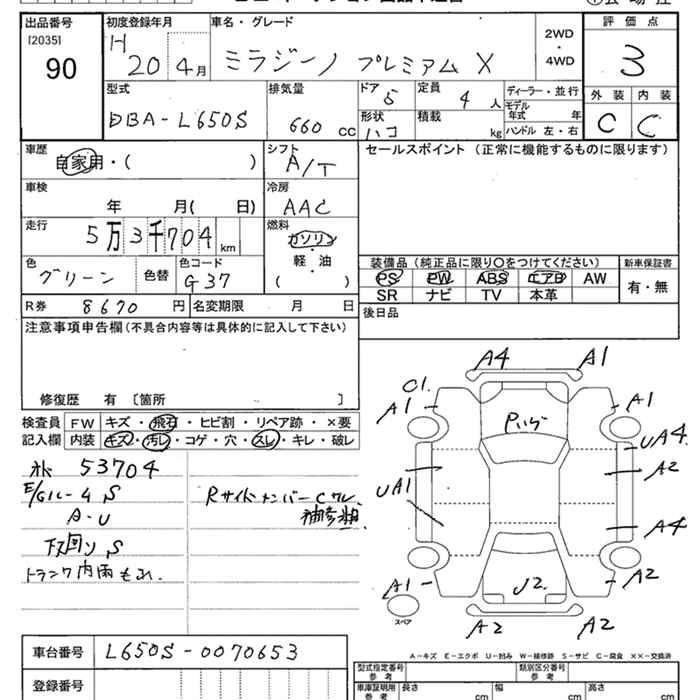 出品番号
[2035]
90
初度登録年月
H
20 04月
車名・グレード
ミラジーノ プレミアム X
2WD
・
4WD
評価点
3
外装 内装
C C
型式
DBA-L650S
排気量
660 cc
ドア 5
定員 4 人
形状 ハコ
積載 kg
ディーラー・並行
モデル年式 年
ハンドル 左・右
車歴
自家用・( )
シフト
A/T
セールスポイント(正常に機能するものに限ります)
車検
年 月( 日)
冷房
AAC
走行
5万3千704km
燃料
ガソリン
・
軽・油
( )
色
グリーン
色替
色コード
G37
装備品(純正品に限り〇をつけてください)
新車保証書
PS PW ABS エアB AW
SR ナビ TV 本革
有・無
R券 8670 円
名変期限 月 日
後日品
注意事項申告欄(不具合内容等は具体的に記入して下さい)
修復歴 有 〔箇所 〕
検査員
記入欄
FW キズ・飛石・ヒビ割・リペア跡・×要
内装 キズ・汚レ・コゲ・穴・スレ・キレ・破レ
53704
E/Gルーム S
A-U
下回り S
トランク内雨もれ.
Rサイドメンバー Cワレ
A4 A1
C1.
A1
A1
UA4.
A2
UA1
A4
A1
A2
A2
A2
U2.
スペア
A-キズ E-エクボ U-凹み W-補修跡 S-サビ C-腐食 XX-交換済
車台番号 L650S-0070653
登録番号
型式指定番号
参考
類別区分番号
参考
車庫証明用
参考
長さ cm
幅 cm
高さ cm